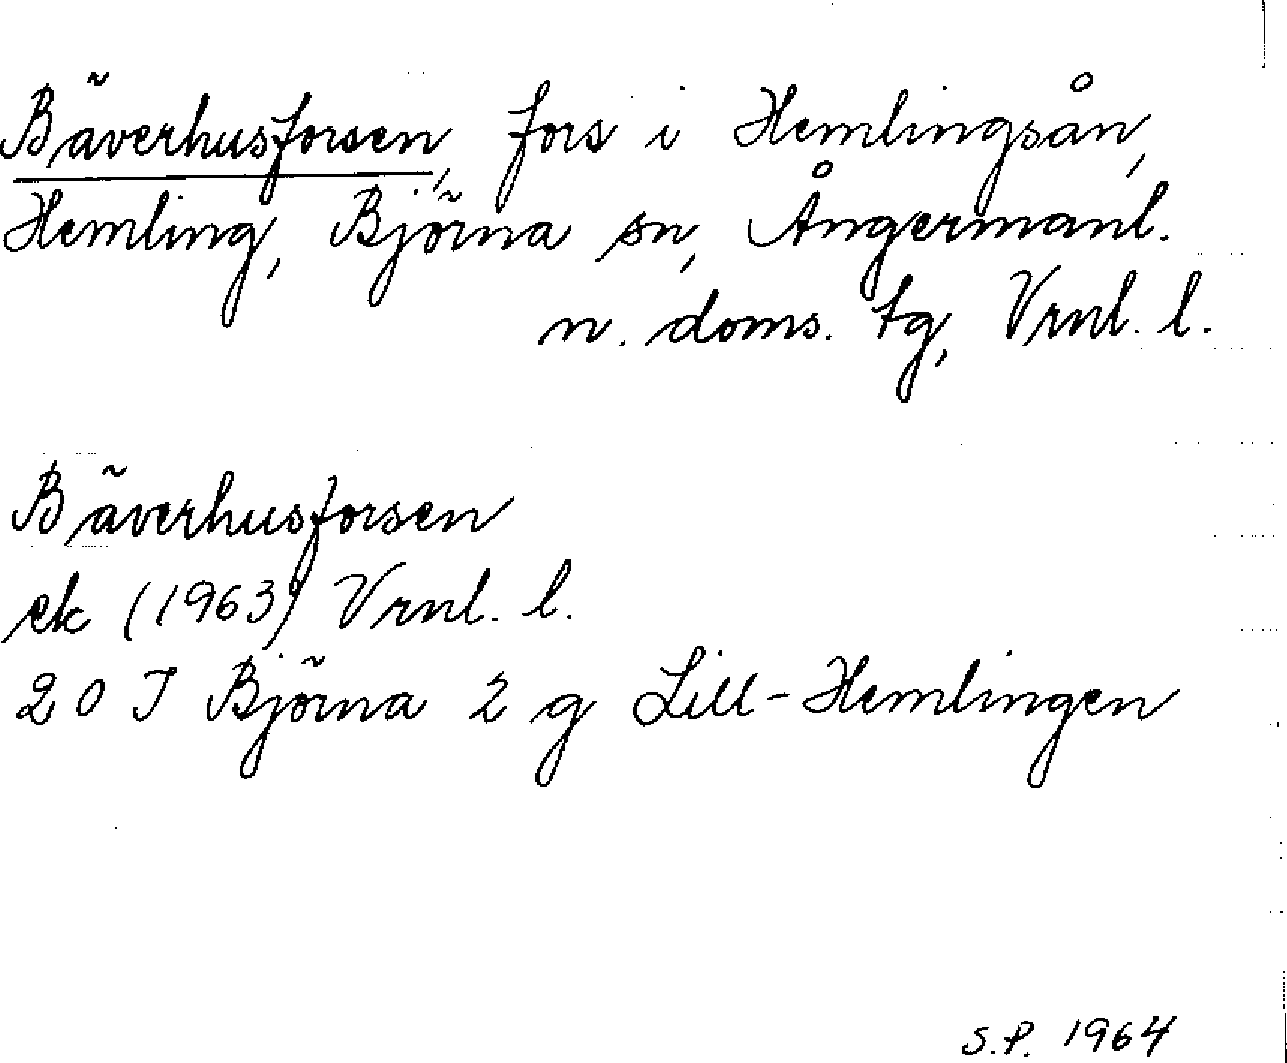 Bäverhusforsen, fors i Hemlingsån,
Hemling, Björna sn, Ångermanl.
n. doms. tg, Vrnl. l.
Bäverhusforsen
ek (1963) Vrnl. l.
20 J Björna 2 g Lill-Hemlingen
S.P. 1964